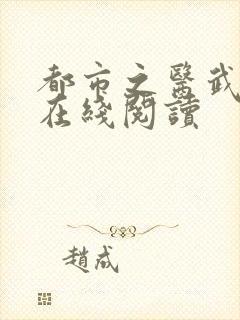 都市之醫武
在綫閱讀
趙成